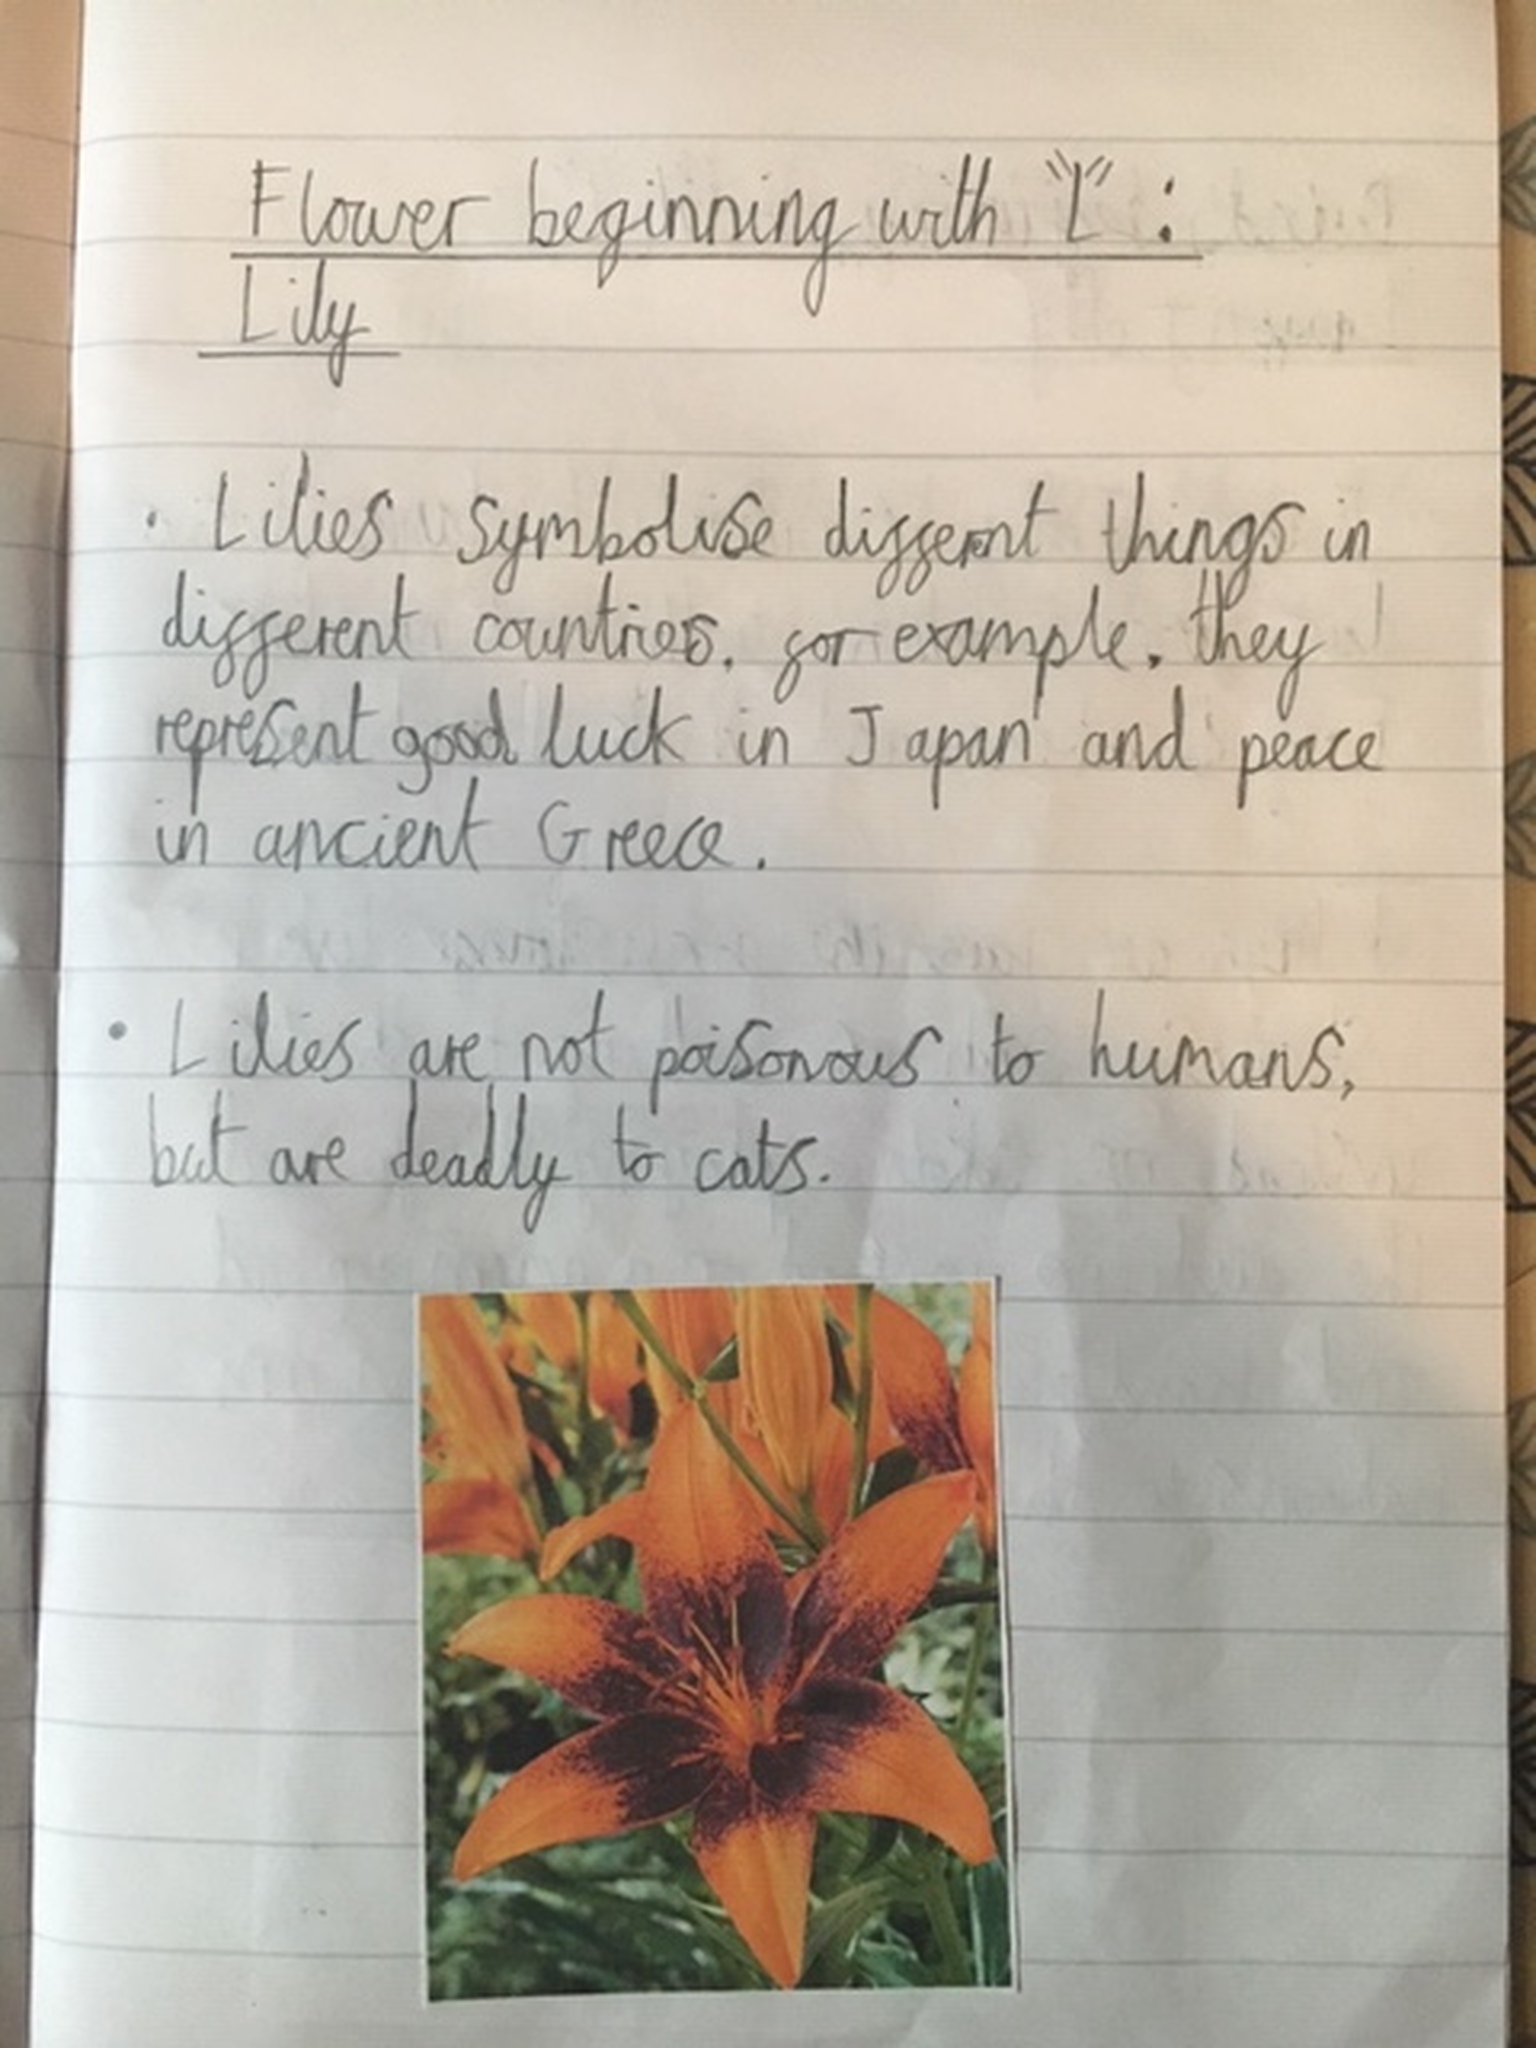 Flower beginning with "L":
Lily
• Lilies symbolise different things in
different countries. for example. they
represent good luck in Japan and peace
in ancient Greece.
• Lilies are not poisonous to humans,
but are deadly to cats.